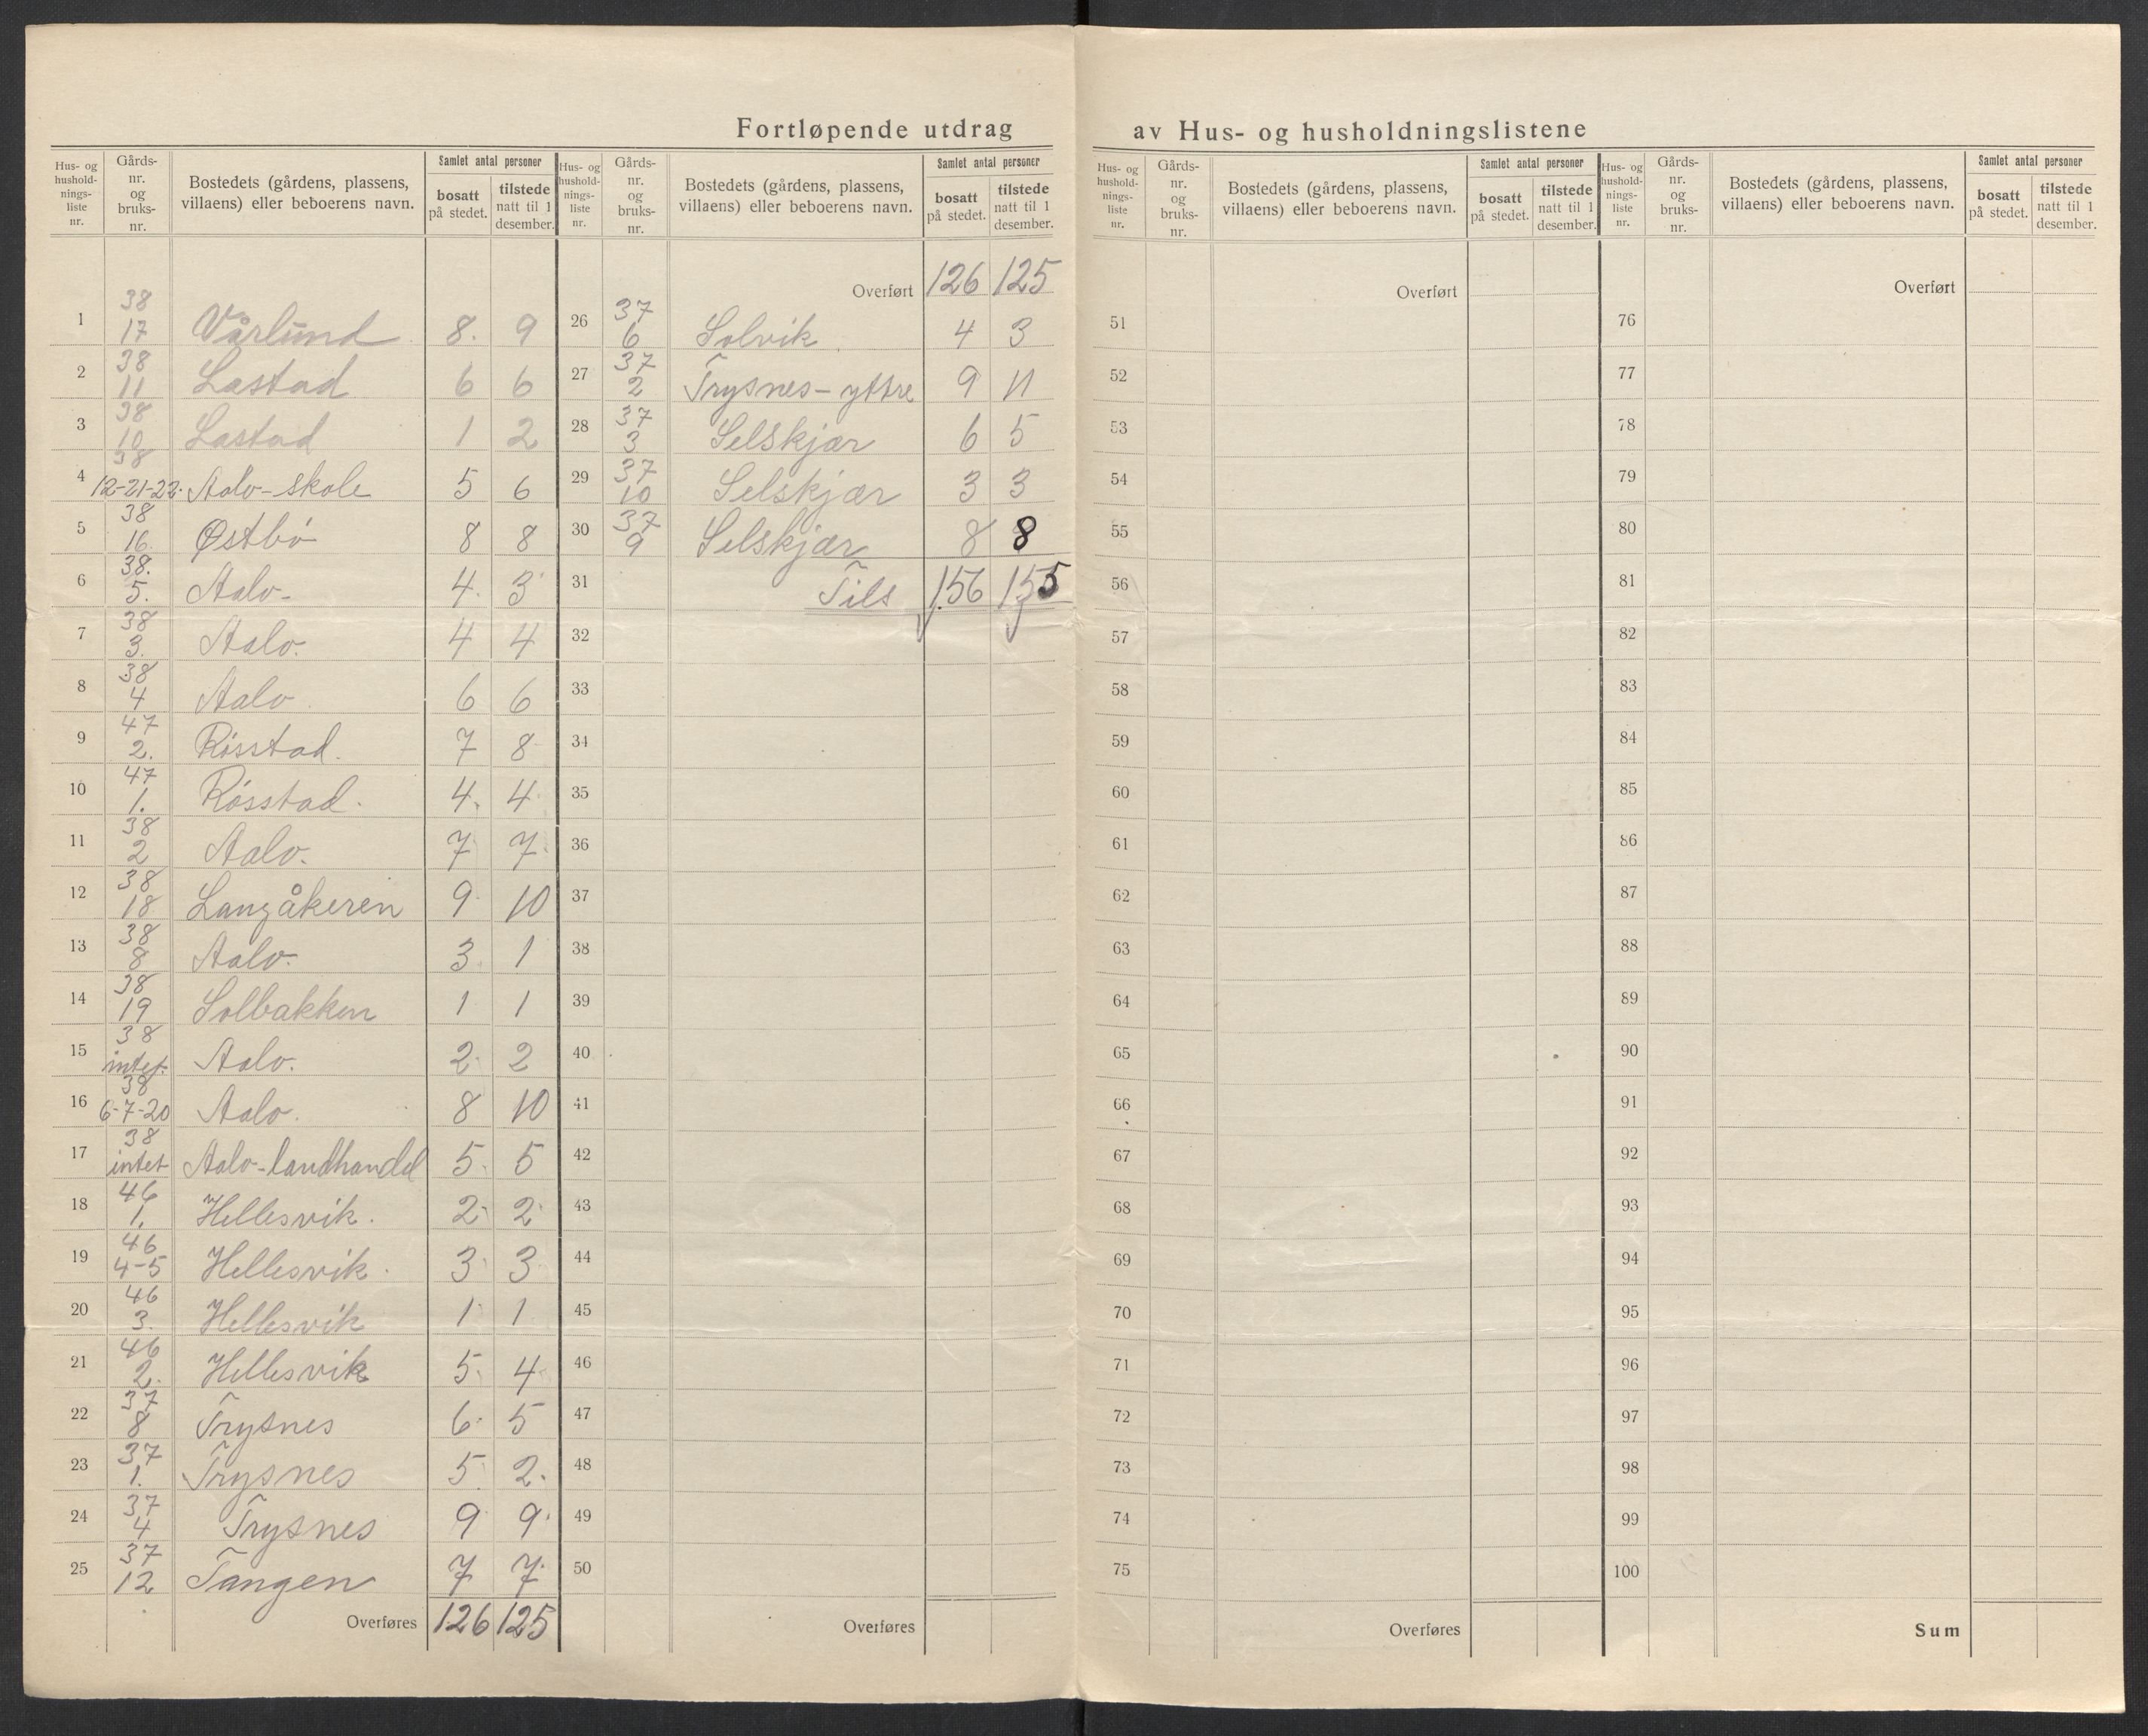 Fortløpende utdrag av Hus- og husholdningslistene
Hus- og hushold-nings-liste nr. Gårds-nr. og bruks-nr. Bostedets (gårdens, plassens, villaens) eller beboerens navn. Samlet antal personer bosatt på stedet. tilstede natt til 1 desember.
1 38 17 Vårlund 8. 9
2 38 11 Lastad 6 6
3 38 10 Lastad 1 2
4 38 12-21-22. Aalo-skole 5 6
5 38 16. Østbö 8 8
6 38. 5. Aalo- 4. 3
7 38 3. Aalo. 4 4
8 38 4 Aalo 6 6
9 47 2. Rösstad. 7 8
10 47 1. Rösstad. 4. 4
11 38 2 Aalo. 7 7
12 38 18 Langåkeren 9 10
13 38 8 Aalo. 3 1
14 38 19 Solbakken 1 1
15 38 intet. Aalo. 2 2
16 38 6-7-20 Aalo. 8 10
17 38 intet Aalo-landhandel 5. 5
18 46 1. Hellesvik. 2 2
19 46 4-5 Hellesvik. 3 3
20 46 3. Hellesvik 1 1
21 46 2. Hellesvik 5. 4
22 37 8 Trysnes 6. 5
23 37 1. Trysnes 5. 2.
24 37 4 Trysnes 9 9.
25 37 12 Tangen 7 7.
Overføres 126 125
Hus- og hushold-nings-liste nr. Gårds-nr. og bruks-nr. Bostedets (gårdens, plassens, villaens) eller beboerens navn. Samlet antal personer bosatt på stedet. tilstede natt til 1 desember.
Overført 126 125
26 37 6 Solvik 4 3
27 37 2 Trysnes-yttre 9 11
28 37 3 Selskjær 6 5
29 37 10 Selskjær 3 3
30 37 9 Selskjær 8 8
31 Tils 156 155
32
33
34
35
36
37
38
39
40
41
42
43
44
45
46
47
48
49
50
Overføres
Hus- og hushold-nings-liste nr. Gårds-nr. og bruks-nr. Bostedets (gårdens, plassens, villaens) eller beboerens navn. Samlet antal personer bosatt på stedet. tilstede natt til 1 desember.
Overført
51
52
53
54
55
56
57
58
59
60
61
62
63
64
65
66
67
68
69
70
71
72
73
74
75
Overføres
Hus- og husholdnings-liste nr. Gårds-nr. og bruks-nr. Bostedets (gårdens, plassens, villaens) eller beboerens navn. Samlet antal personer bosatt på stedet. tilstede natt til 1 desember.
Overført
76
77
78
79
80
81
82
83
84
85
86
87
88
89
90
91
92
93
94
95
96
97
98
99
100
Sum